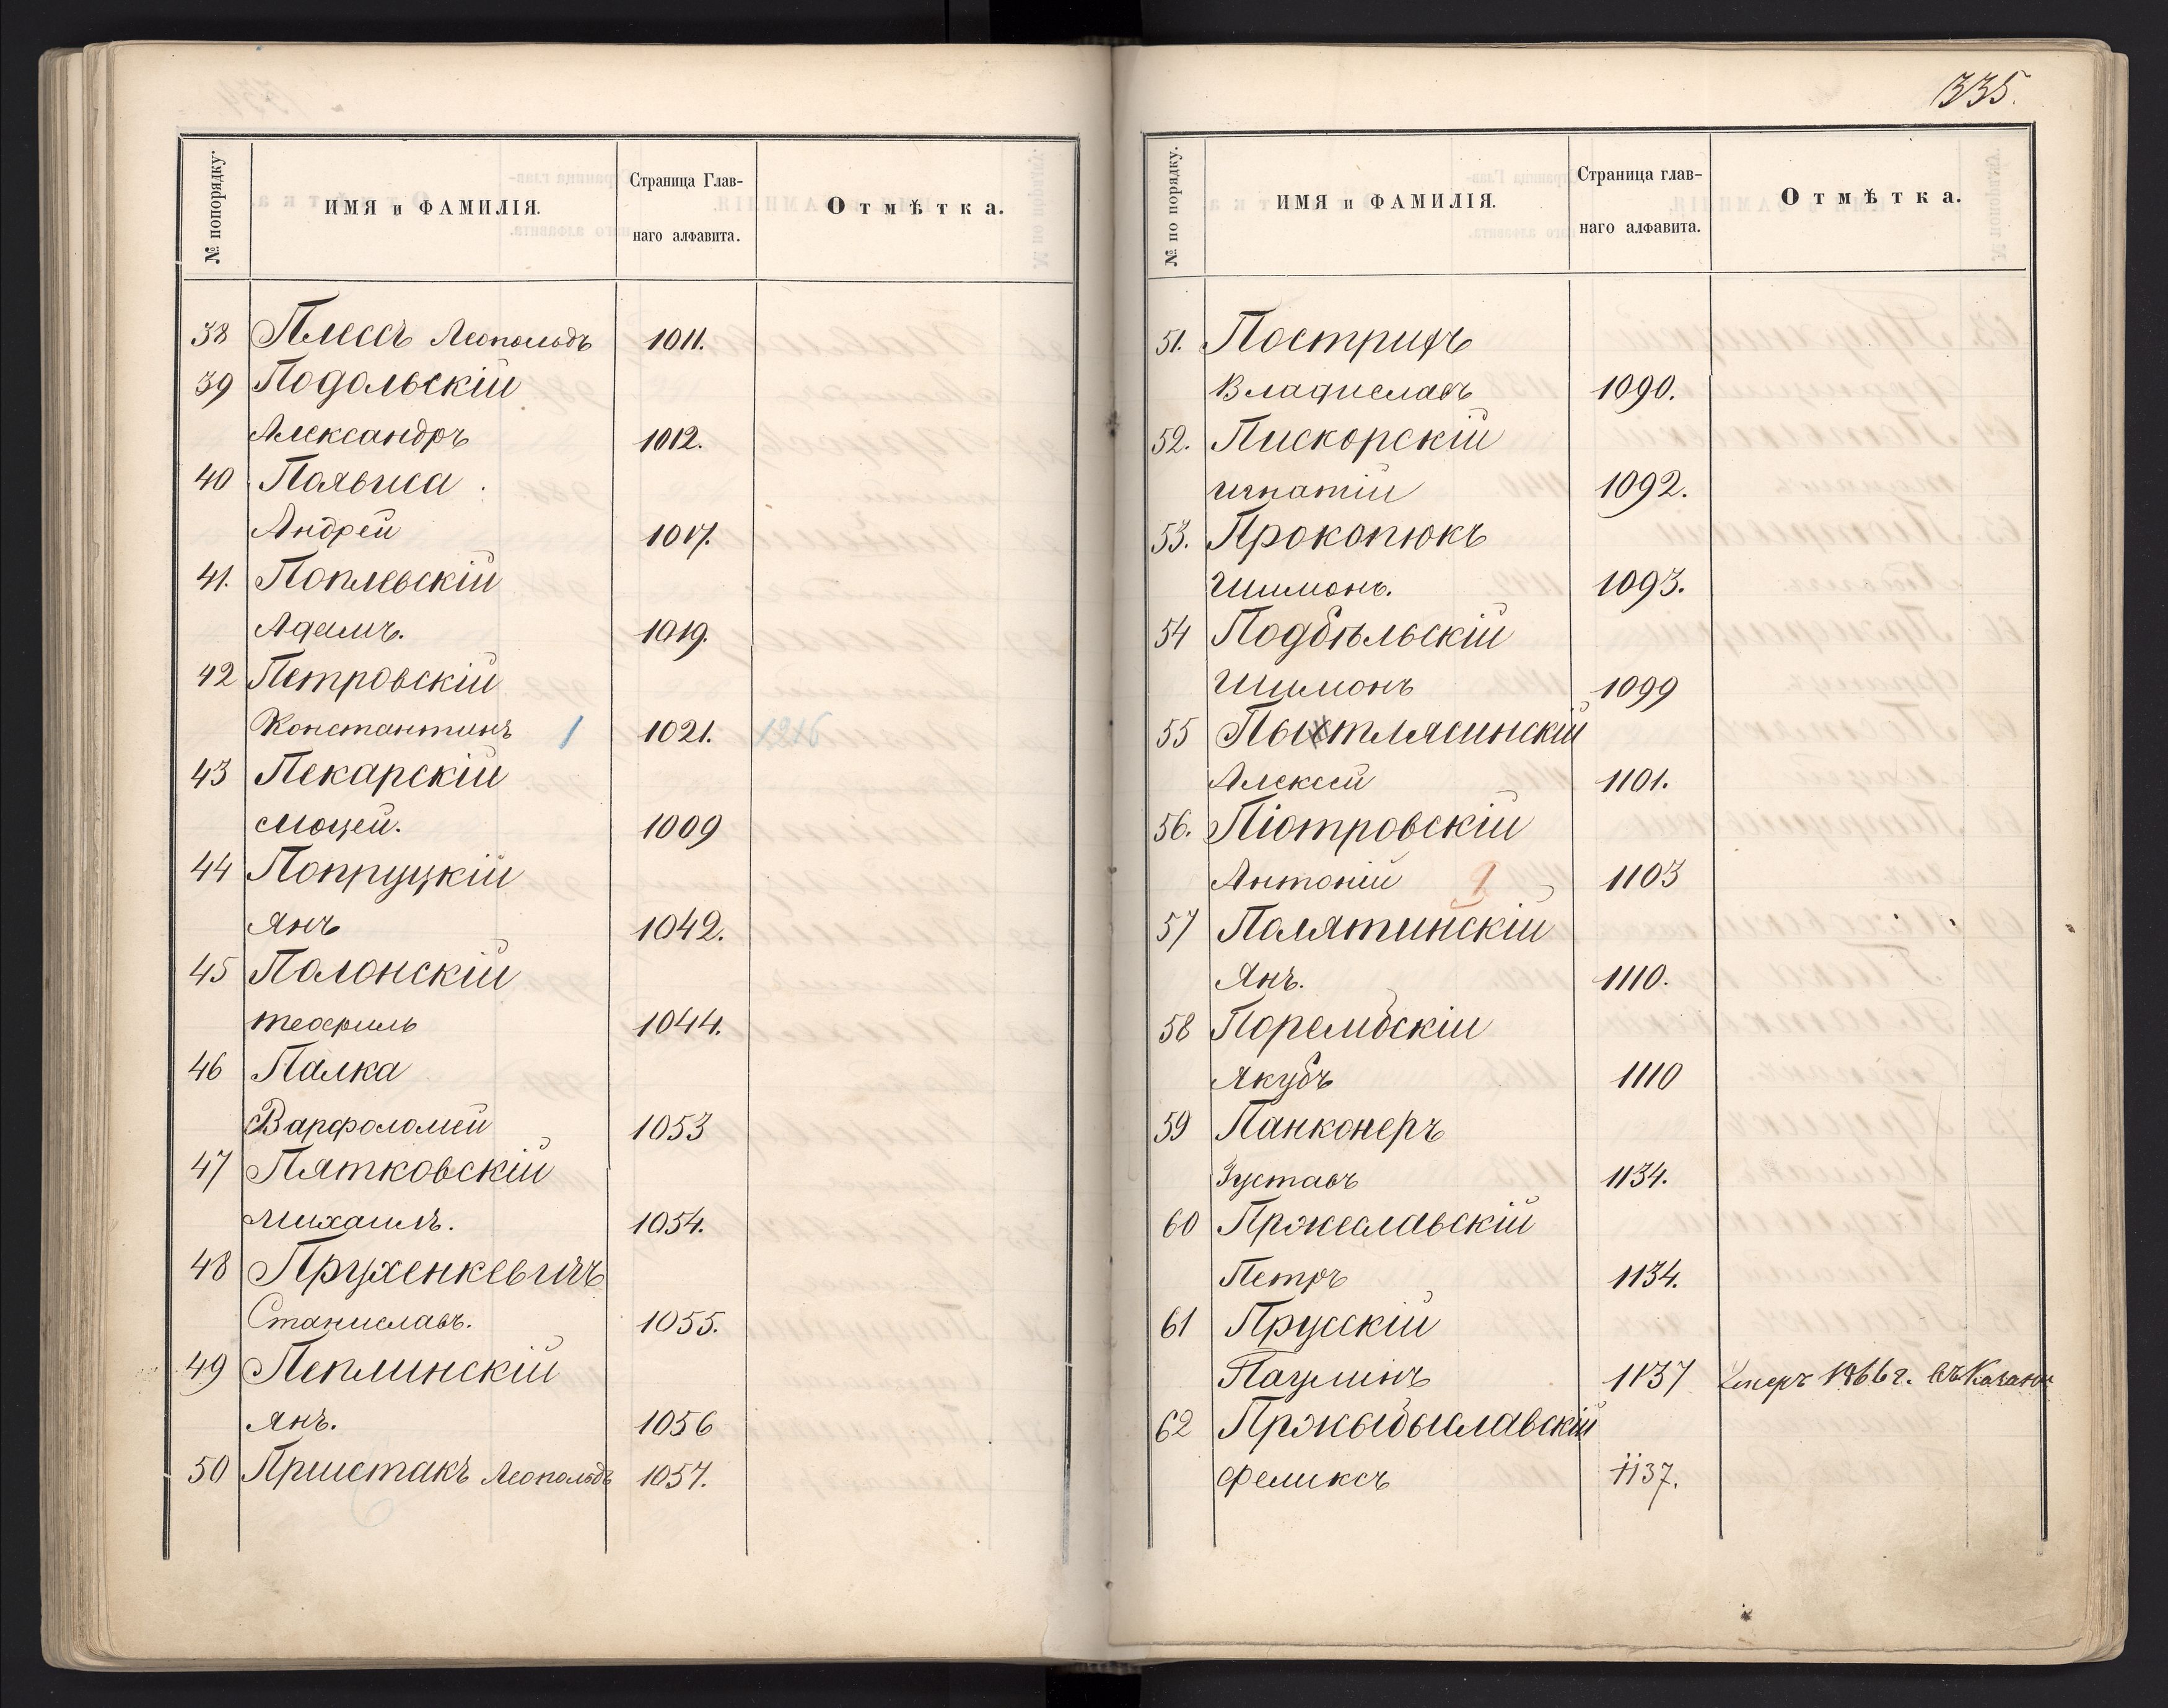 № попорядку.
ИМЯ и ФАМИЛІЯ.
Страница Глав-
наго алфавита.
Отмѣтка.
38 Плессъ Леопольдъ 1011.
39 Подольскій
Александръ 1012.
40 Поляьиса
Андрей 1017.
41. Поплевскій
Адамъ. 1019.
42 Петровскій
Константинъ 1 1021. 1216
43 Пекарскій
Моцей. 1009
44 Попруцкій
Янъ 1042.
45 Полонскій
Теофиль 1044.
46 Палка
Варфоломей 1053
47 Пятковскій
Михаилъ. 1054.
48 Прухенкевичъ
Станиславъ. 1055.
49 Пеплинскій
Янъ. 1056
50 Пристакъ Леопольдъ 1057.
335.
№ по порядку.
ИМЯ и ФАМИЛІЯ.
Страница глав-
наго алфавита.
Отмѣтка.
51. Пострифъ
Владиславъ 1090.
52. Пискорскій
Игнатій 1092.
53. Прокопюкъ
Шимонъ. 1093.
54 Подбѣльскій
Шимонъ 1099
55 Пыхтлясинскій
Алексей 1101.
56. Піотровскій
Антоній 1 1103
57 Полятинскій
Янъ. 1110.
58 Порембскій
Якубъ 1110
59 Панконеръ
Густавъ 1134.
60 Пржеславскій
Петръ 1134.
61 Прусскій
Паулинъ 1137 1866 г. въ Казани
62 Пржыбыславскій
Феликсъ 1137.